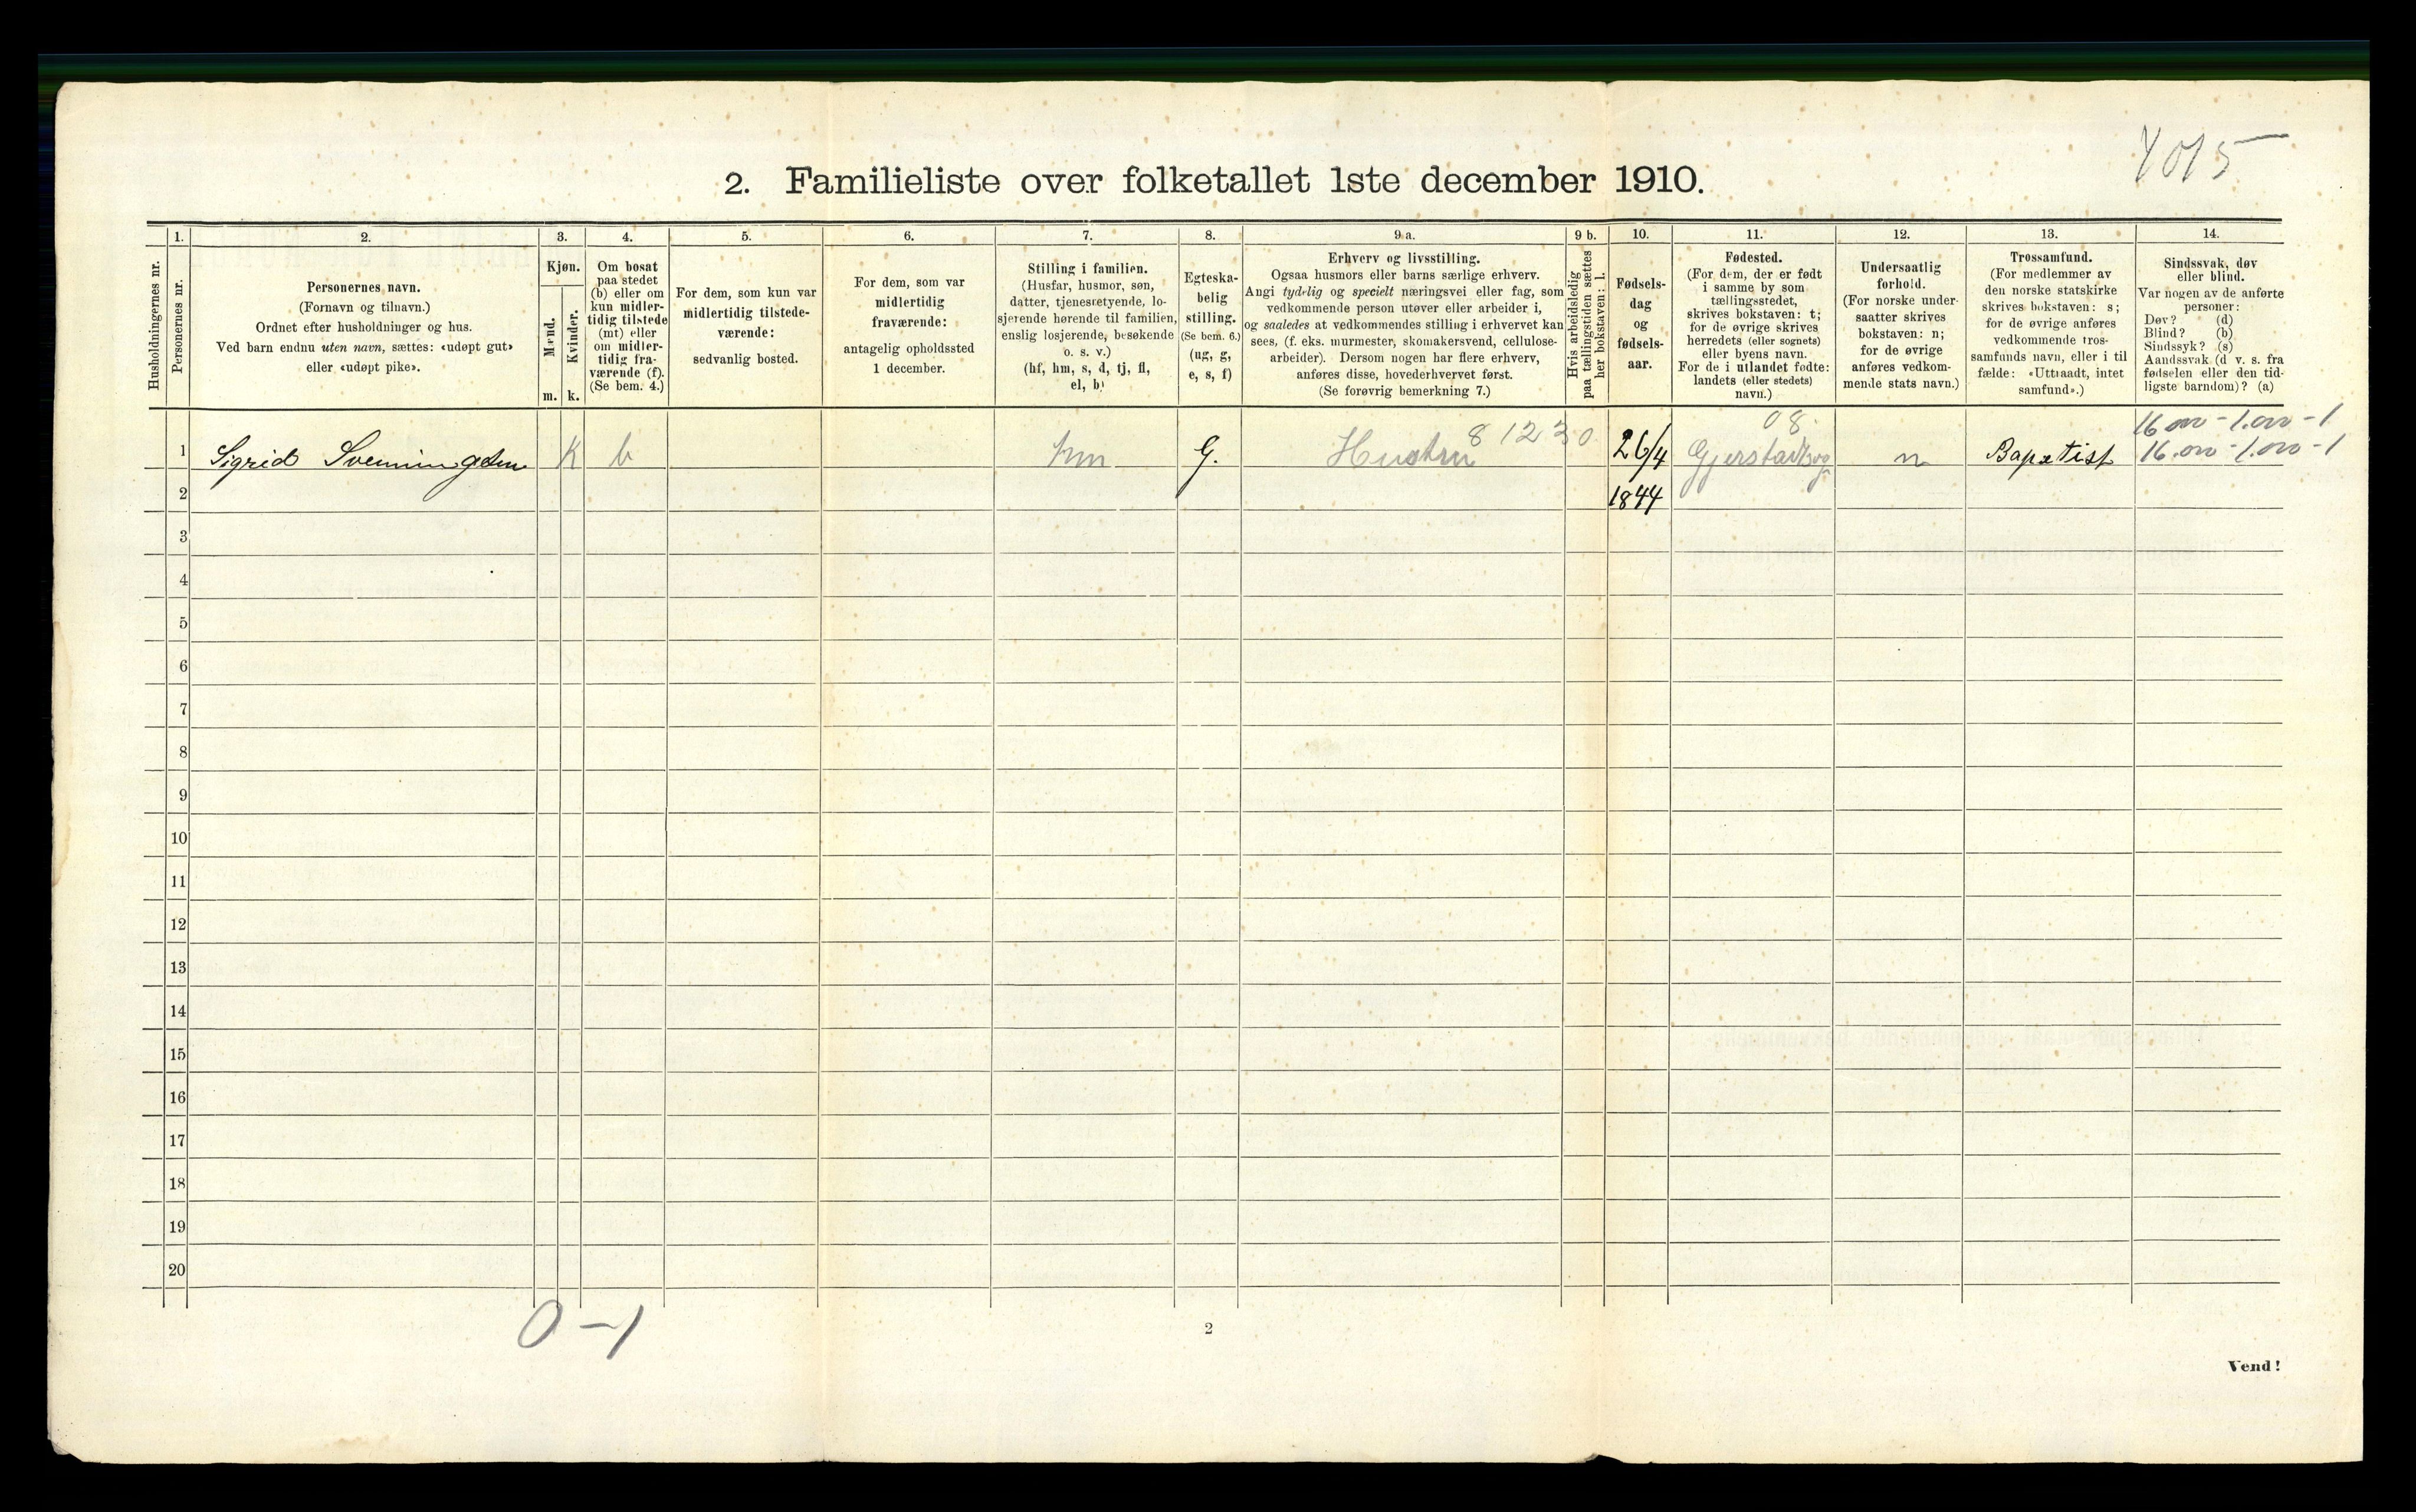 2. Familieliste over folketallet 1ste december 1910.
1.
2.
3.
4.
5.
6.
7.
8.
9 a.
9 b.
10.
11.
12.
13.
14.
Husholdningernes nr.
Personernes nr.
Personernes navn.
(Fornavn og tilnavn.)
Ordnet efter husholdninger og hus.
Ved barn endnu uten navn, sættes: «udøpt gut»
eller «udøpt pike».
Kjøn.
Mænd.
Kvinder.
m.
k.
Om bosat
paa stedet
(b) eller om
kun midler-
tidig tilstede
(mt) eller
om midler-
tidig fra-
værende (f).
(Se bem. 4.)
For dem, som kun var
midlertidig tilstede-
værende:
sedvanlig bosted.
For dem, som var
midlertidig
fraværende:
antagelig opholdssted
1 december.
Stilling i familien.
(Husfar, husmor, søn,
datter, tjenestetyende, lo-
sjerende hørende til familien,
enslig losjerende, besøkende
o. s. v.)
(hf, hm, s, d, tj, fl,
el, b)
Egteska-
belig
stilling.
(Se bem. 6.)
(ug, g,
e, s, f)
Erhverv og livsstilling.
Ogsaa husmors eller barns særlige erhverv.
Angi tydelig og specielt næringsvei eller fag, som
vedkommende person utøver eller arbeider i,
og saaledes at vedkommendes stilling i erhvervet kan
sees, (f. eks. murmester, skomakersvend, cellulose-
arbeider). Dersom nogen har flere erhverv,
anføres disse, hovederhvervet først.
(Se forøvrig bemerkning 7.)
Hvis arbeidsledig
paa tællingstiden sættes
her bokstaven: l.
Fødsels-
dag
og
fødsels-
aar.
Fødested.
(For dem, der er født
i samme by som
tællingsstedet,
skrives bokstaven: t;
for de øvrige skrives
herredets (eller sognets)
eller byens navn.
For de i utlandet fødte:
landets (eller stedets)
navn.)
Undersaatlig
forhold.
(For norske under-
saatter skrives
bokstaven: n;
for de øvrige
anføres vedkom-
mende stats navn.)
Trossamfund.
(For medlemmer av
den norske statskirke
skrives bokstaven: s;
for de øvrige anføres
vedkommende tros-
samfunds navn, eller i til
fælde: «Uttraadt, intet
samfund».)
Sindssvak, døv
eller blind.
Var nogen av de anførte
personer:
Døv? (d)
Blind? (b)
Sindssyk? (s)
Aandssvak (d v. s. fra
fødselen eller den tid-
ligste barndom)? (a)
08
8 12 30
1 Sigrid Svenningsen K b hm G. Hustru 26/4 n Baptist
2 1844
3
4
5
6
7
8
9
10
11
12
13
14
15
16
17
18
19
20
0-1
2
Vend!